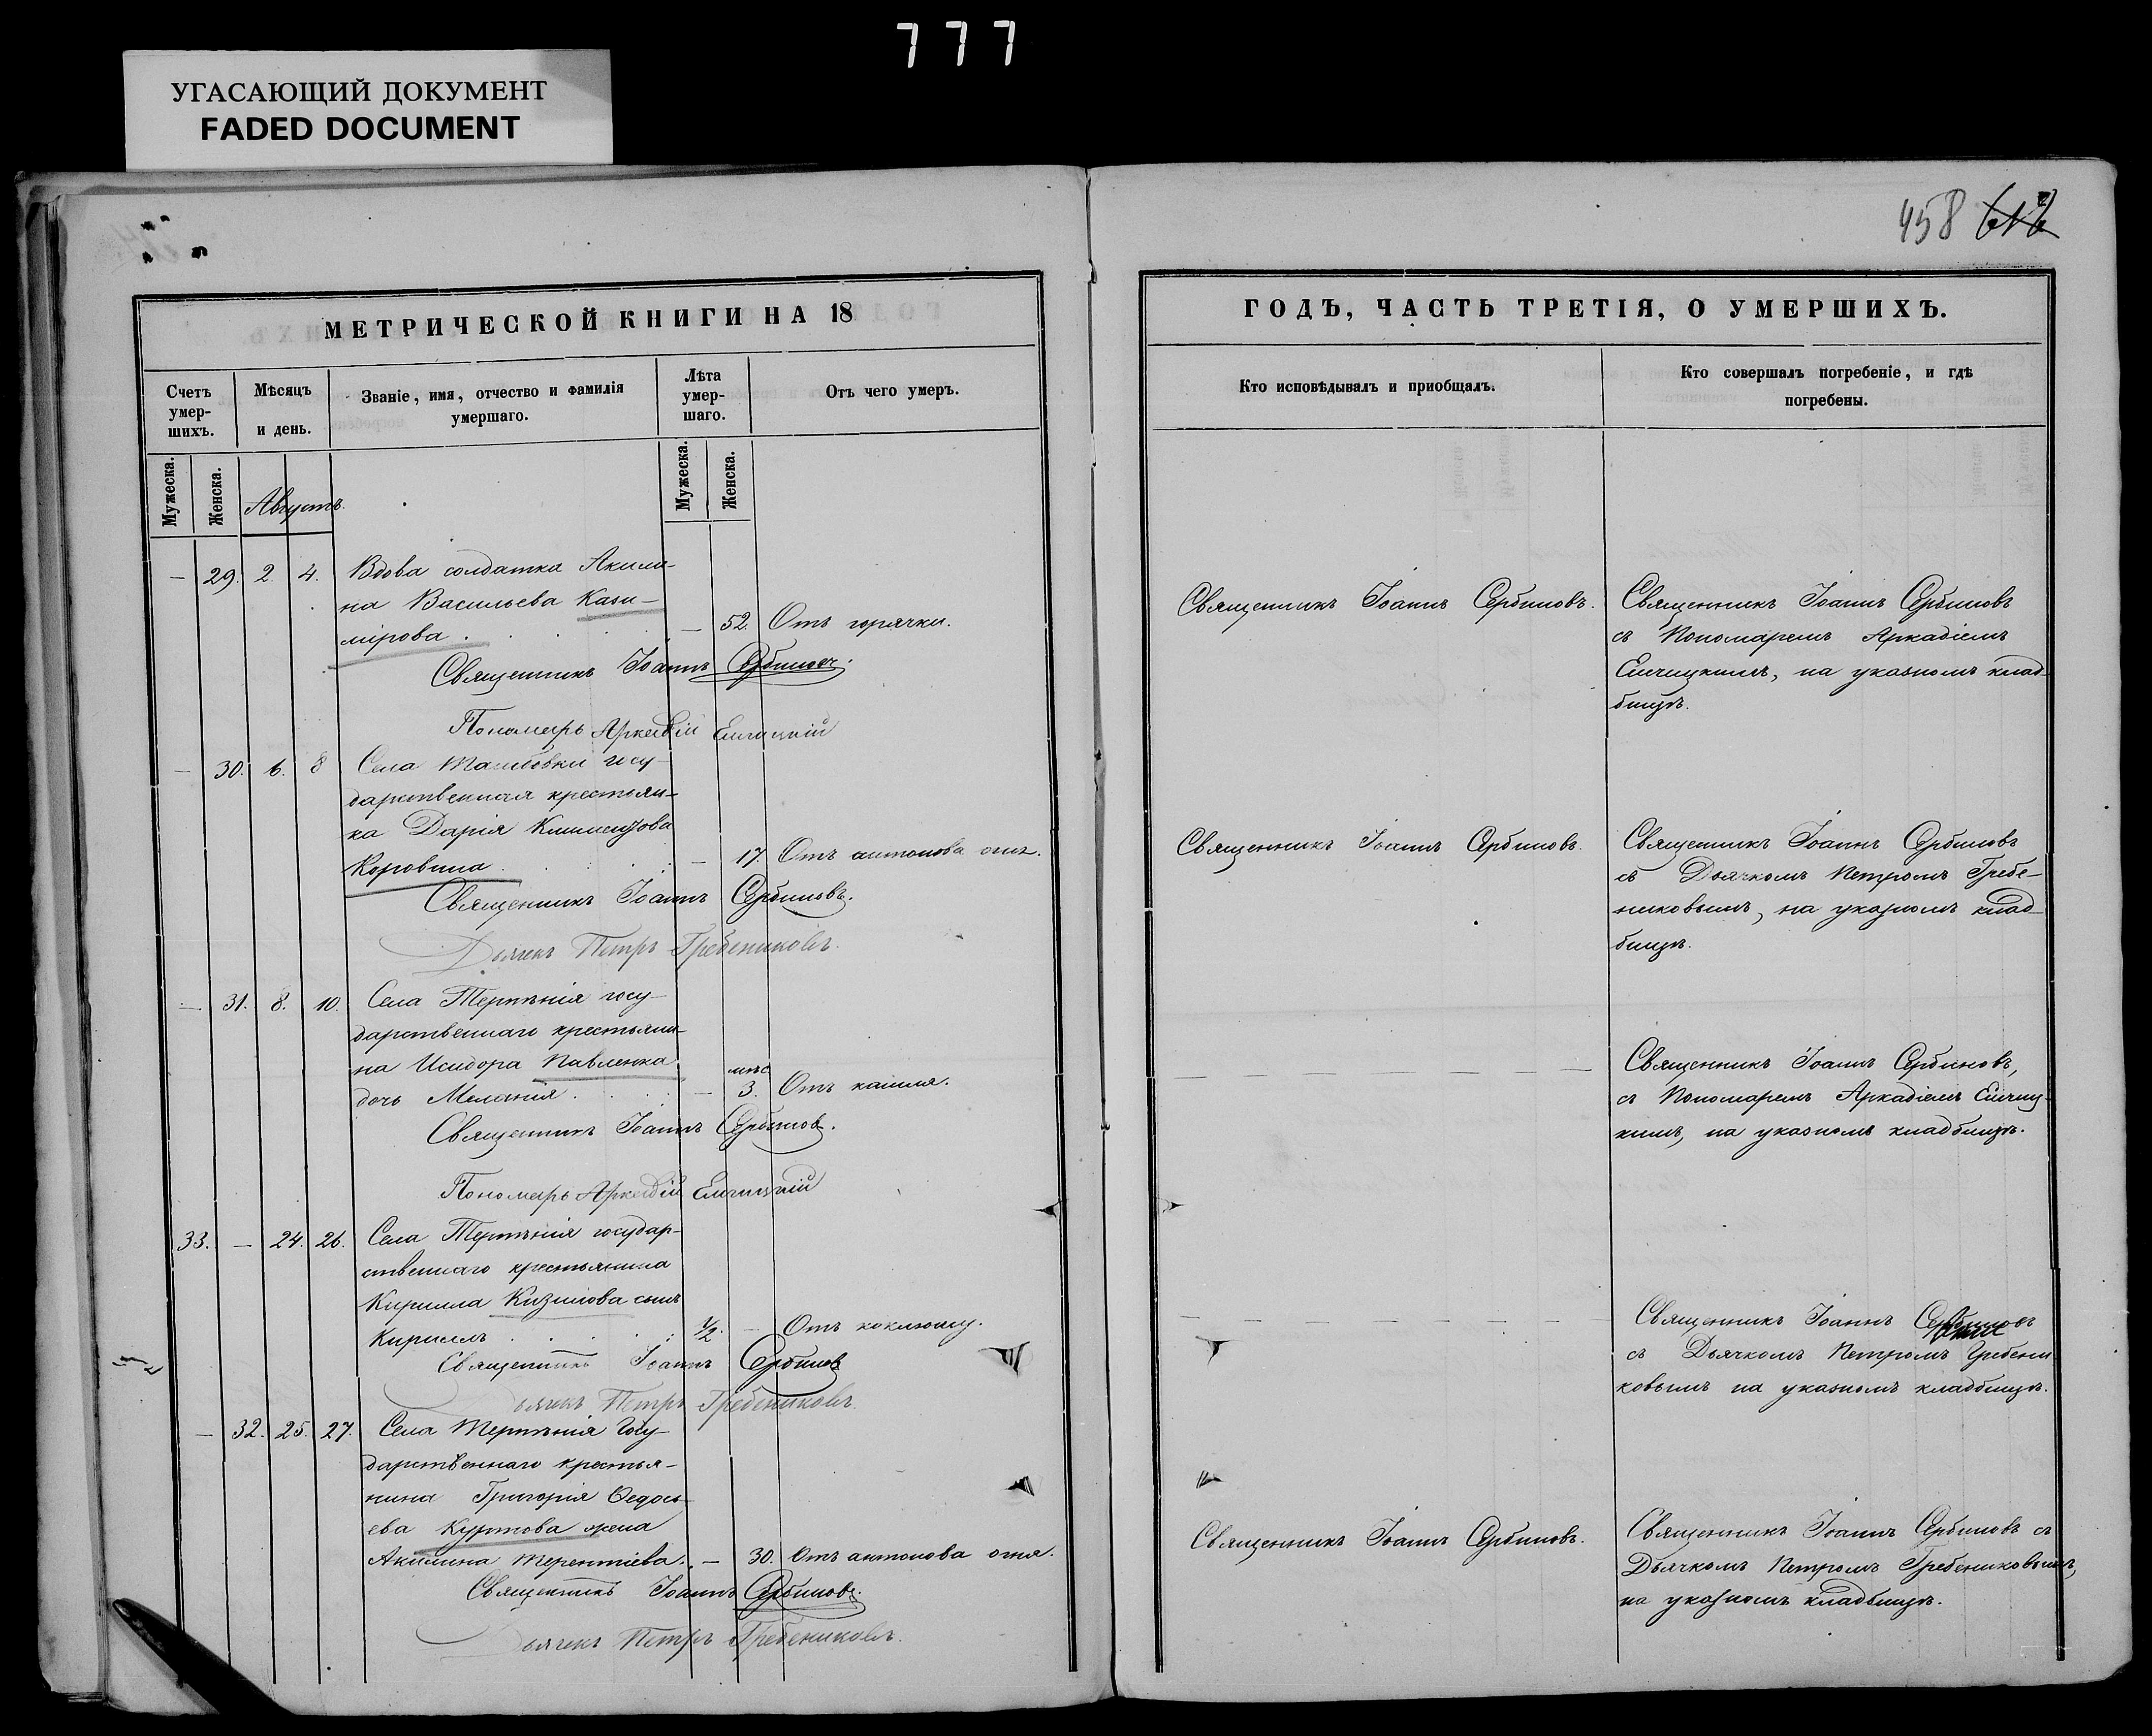 777
УГАСАЮЩИЙ ДОКУМЕНТ
FADED DOCUMENT
458 612
МЕТРИЧЕСКОЙ КНИГИ НА 18
Счетъ умер-шихъ.
Мѣсяцъ и день.
Званіе, имя, отчество и фамилія умершаго.
Лѣта умер-шаго.
Отъ чего умеръ.
Мужеска.
Женска.
Августъ.
Мужеска.
Женска.
— 29. 2. 4. Вдова солдатка Акили-
на Васильева Кази-
мірова . — 52. Отъ горячки.
Священникъ Іоаннъ Сербиновъ.
Пономарь Аркадій Енчицкій
— 30. 6. 8 Села госу-
дарственная крестьян-
ка Дарія Климентова
Коровина — 17 Отъ антонова огня.
Священникъ Іоаннъ Сербиновъ.
Дьячекъ Петръ Гребениковъ.
— 31. 8. 10. Села Терпѣнія госу-
дарственнаго крестьяни-
на Исидора Павленка
дочь Меланія . — мѣс 3. Отъ кашля.
Священникъ Іоаннъ Сербиновъ.
Пономарь Аркадій Енчицкій
33. — 24. 26. Села Терпѣнія государ-
ственнаго крестьянина
Кирилла Кизилова сынъ
Кириллъ . . . . . 1/2. — Отъ коклюшу.
Священникъ Іоаннъ Сербиновъ
Дьячекъ Петръ Гребениковъ.
— 32. 25. 27. Села Терпѣнія Госу-
дарственнаго крестья-
нина Григорія Ѳедось-
ева Куртова жена
Акилина Терентіева. — 30. Отъ антонова огня.
Священникъ Іоаннъ Сербиновъ.
Дьячекъ Петръ Гребениковъ.
ГОДЪ, ЧАСТЬ ТРЕТІЯ, О УМЕРШИХЪ.
Кто исповѣдывалъ и пріобщалъ.
Кто совершалъ погребеніе, и гдѣ
погребены.
Священникъ Іоаннъ Сербиновъ.
Священникъ Іоаннъ Сербиновъ
съ Пономаремъ Аркадіемъ
Енчицкимъ, на указномъ клад-
бищѣ.
Священникъ Іоаннъ Сербиновъ.
Священникъ Іоаннъ Сербиновъ
съ Дьячкомъ Петромъ Гребе-
никовымъ, на указномъ клад-
бищѣ.
Священникъ Іоаннъ Сербиновъ,
съ Пономаремъ Аркадіемъ Енчиц-
кимъ, на указномъ кладбищѣ.
Священникъ Іоаннъ Сербиновъ
съ Дьячкомъ Петромъ Гребени-
ковымъ на указномъ кладбищѣ.
Священникъ Іоаннъ Сербиновъ.
Священникъ Іоаннъ Сербиновъ съ
Дьячкомъ Петромъ Гребениковымъ,
на указномъ кладбищѣ.